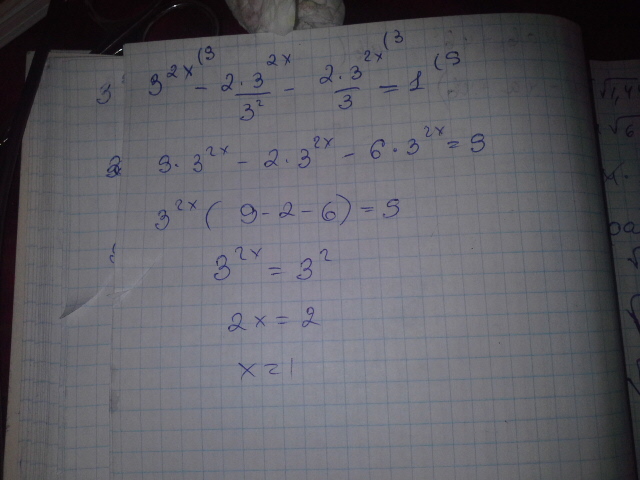 3^{2x} (9 - \frac{2 \cdot 3^{2x}}{3^2} - \frac{2 \cdot 3^{2x}}{3} (3 = 1 (9
9 \cdot 3^{2x} - 2 \cdot 3^{2x} - 6 \cdot 3^{2x} = 9
3^{2x} ( 9 - 2 - 6 ) = 9
3^{2x} = 3^2
2x = 2
x = 1